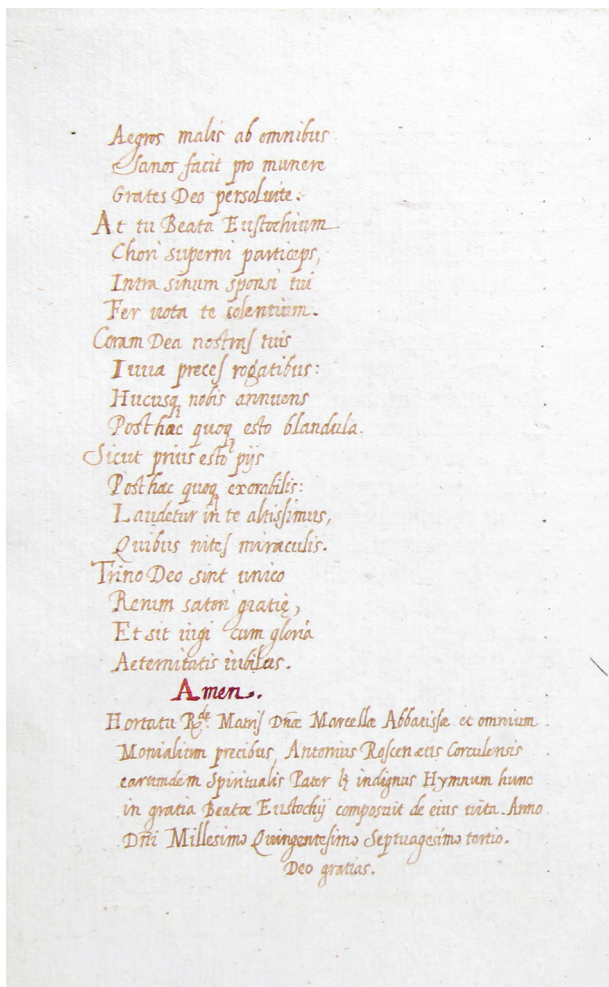 Aegros malis ab omnibus
Sanos facit pro munere
Grates Deo persoluite.
At tu Beata Eustochium
Chori superni particeps,
Intra sinum sponsi tui
Fer uota te colentium.
Coram Dea nostras tuis
Iuua preces rogatibus:
Hucusq nobis annuens
Posthac quoq esto blandula.
Sicut prius esto pijs
Posthac quoq exorabilis:
Laudetur in te altissimus,
Quibus nites miraculis.
Trino Deo sint unico
Rerum satori gratię,
Et sit iugi cum gloria
Aeternitatis iubilus.
Amen.
Hortatu Rde Matris Dnæ Marcellæ Abbatissæ et omnium
Monialium precibus, Antonius Corculensis
earundem Spiritualis Pater lꝫ indignus Hymnum hunc
in gratia Beatæ Eustochij composuit de eius uita. Anno
Dni Millesimo Quingentesimo Septuagesimo tertio.
Deo gratias.